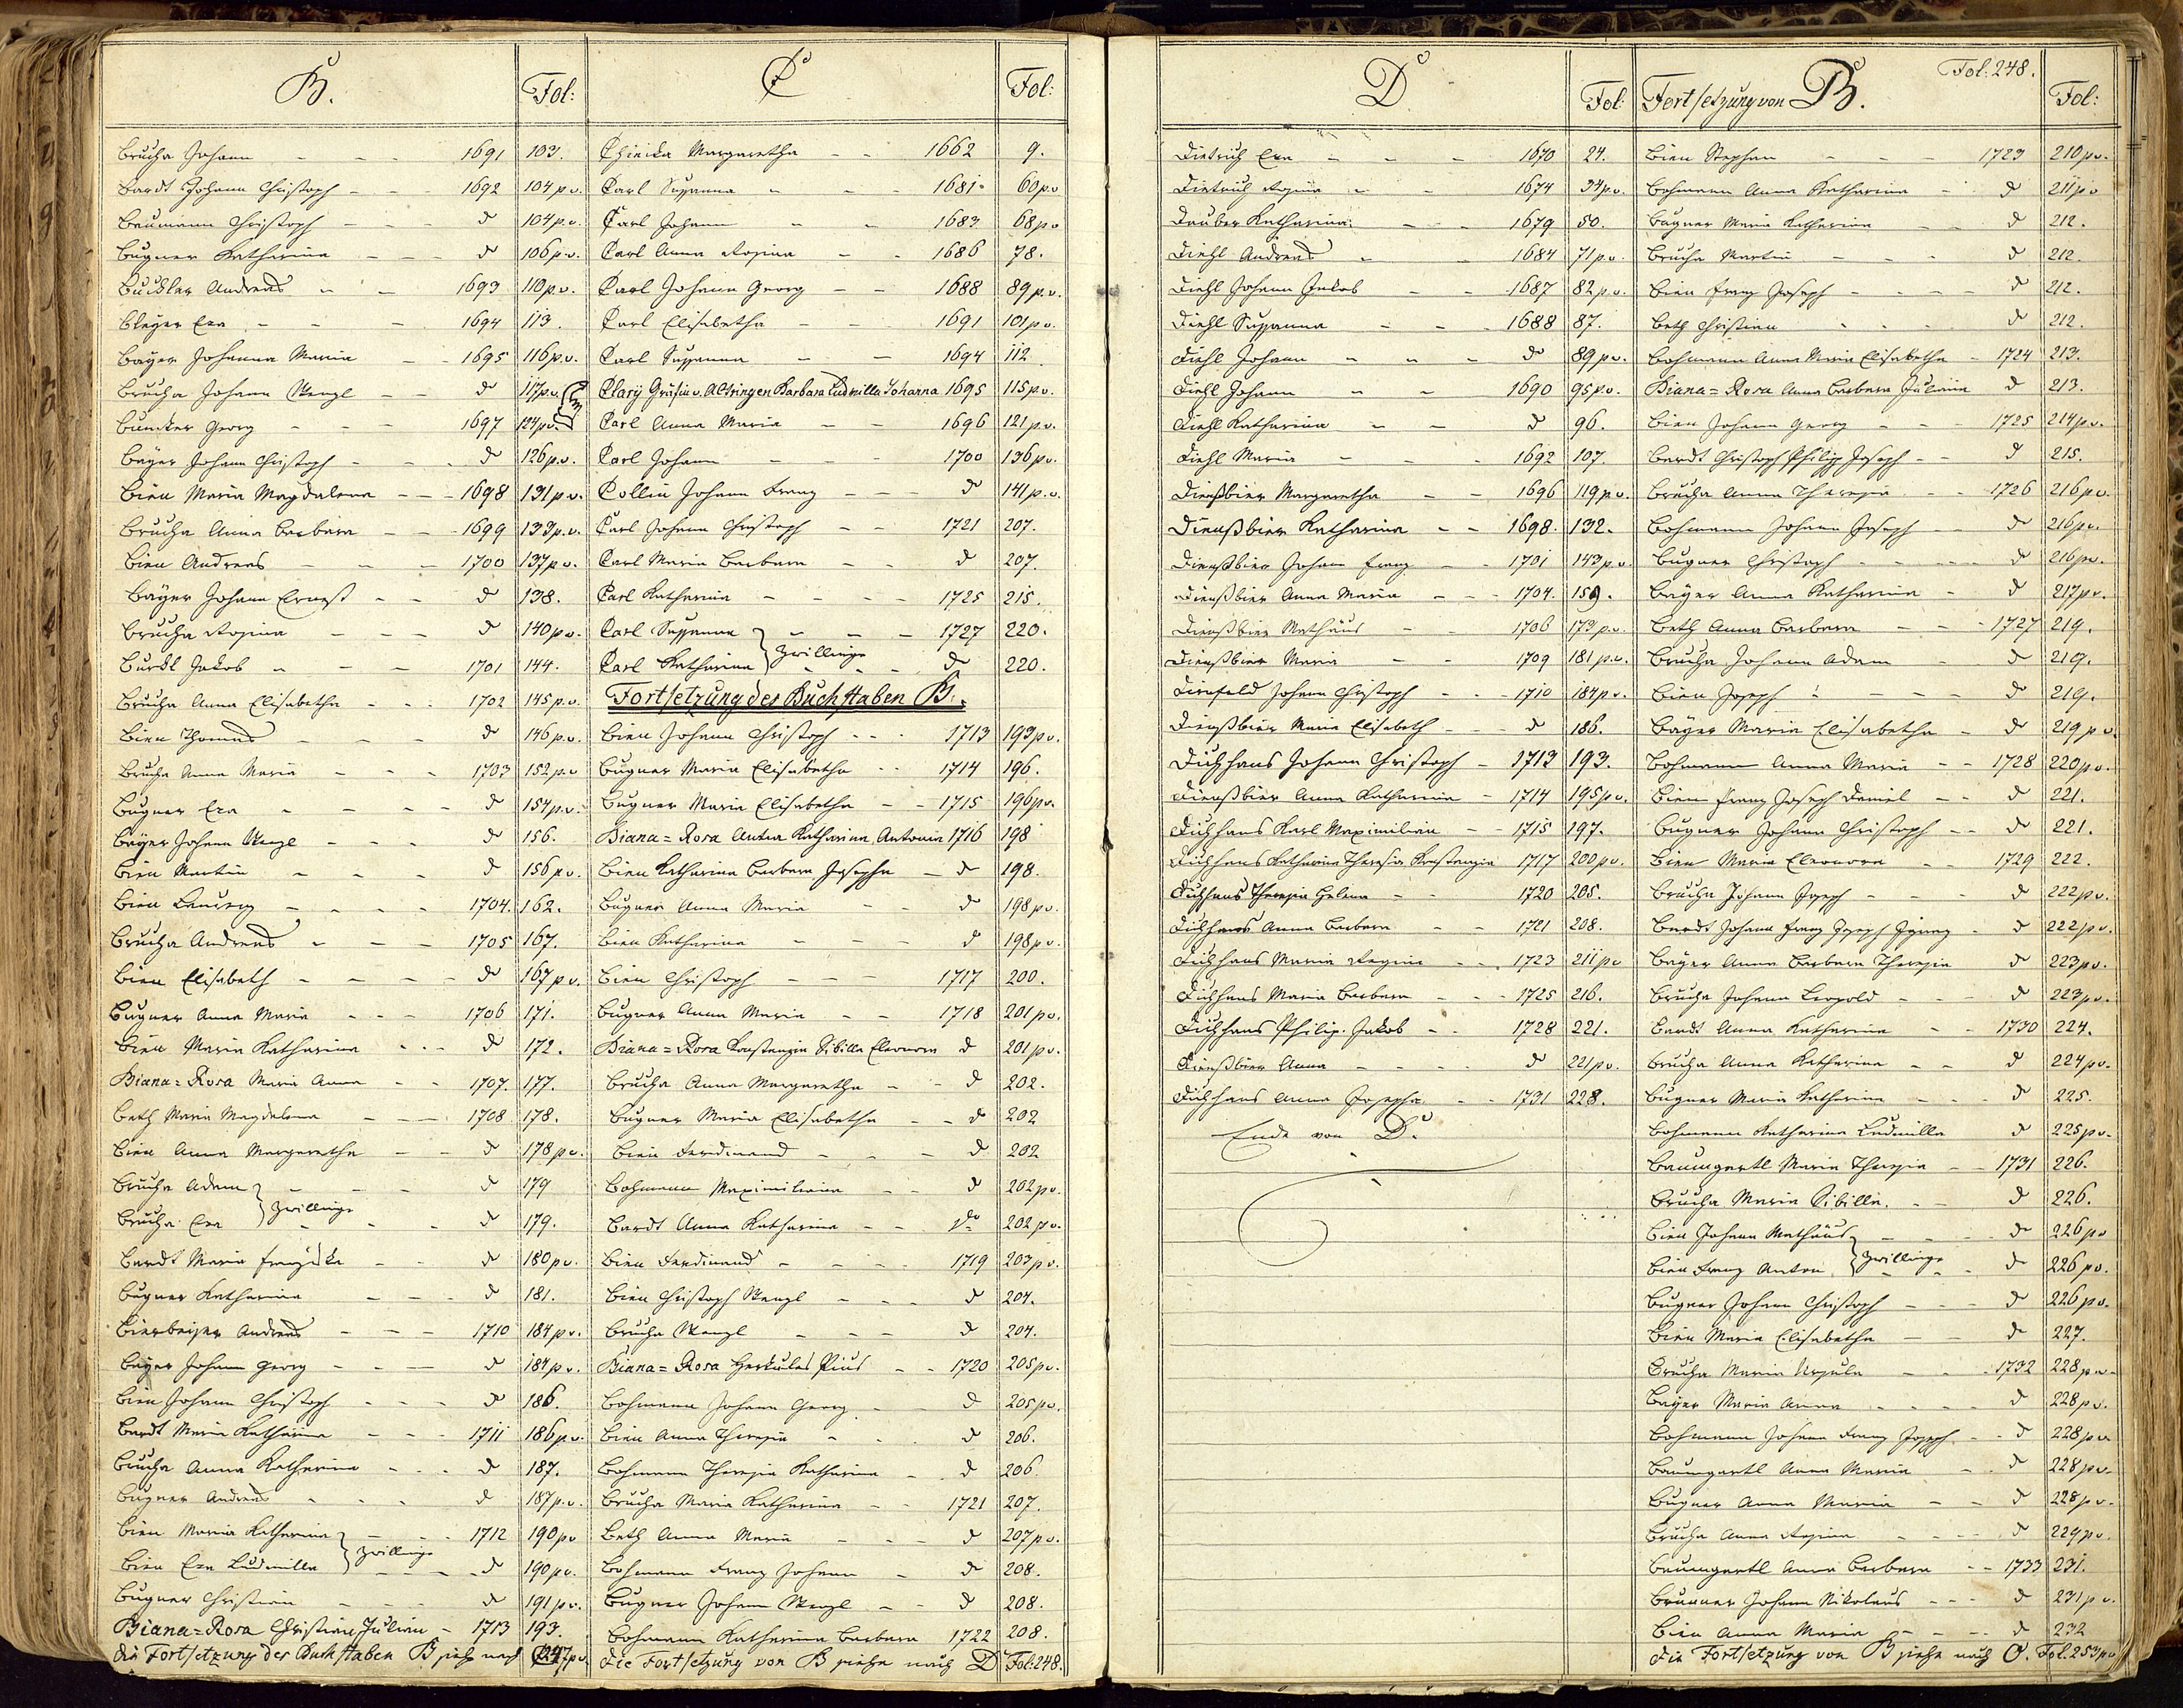 B. Fol:
Brucha Johann - - - 1691 103.
Bardt Johann Christoph - - 1692 104 p.v.
Baumann Christoph - - - d 104 p.v.
Bugner Katharina - - - d 106 p.v.
Buckler Andreas - - 1693 110 p.v.
Bleyer Eva - - - 1694 113.
Bayer Johanna Maria - - 1695 116 p.v.
Brucha Johann Wenzl - - d 117 p.v.
Buncker Georg - - - 1697 124 p.v.
Bayer Johann Christoph - - d 126 p.v.
Bien Maria Magdalena - - - 1698 131 p.v.
Brucha Anna Barbara - - 1699 133 p.v.
Bien Andreas - - - 1700 137 p.v.
Bayer Johann Ernest - - d 138.
Brucha Rosina - - - d 140 p.v.
Burckl Jakob - - - 1701 144.
Brucha Anna Elisabetha - - - 1702 145 p.v.
Bien Thomas - - - d 146 p.v.
Brucha Anna Maria - - - 1703 152 p.v.
Bugner Eva - - - - d 154 p.v.
Bayer Johann Wenzl - - - d 156.
Bien Martin - - - d 156 p.v.
Bien - - - - 1704. 162.
Brucha Andreas - - - 1705 167.
Bien Elisabeth - - - - d 167 p v.
Bugner Anna Maria - - - 1706 171.
Bien Maria Katharina - - - d 172.
Biana = Rosa Maria Anna - - 1707. 177.
Beth Maria Magdalena - - 1708 178.
Bien Anna Margaretha - - d 178 p v.
Brucha Adam } - - - d 179
Brucha Eva } Zwillinge - - d 179.
Bardt Maria Franziska - - d 180 p v.
Bugner Katharina - - - d 181.
Bierbeiser Andreas - - - 1710 184 p v.
Bayer Johann Georg - - - d 184 p v.
Bien Johann Christoph - - - d 186.
Bardt Maria Katharina - - - 1711 186 p.v.
Brucha Anna Katharina - - - d 187.
Bugner Andreas - - - d 187 p.v.
Bien Maria Katharina } - - - 1712 190 p v
Bien Eva Ludmilla } Zwillinge - - - d 190 p v.
Bugner Christian - - - d 191 p v.
Biana = Rosa Christian Julian - 1713 193.
die Fortsetzung des Buchstaben B sieh nach C 247 p v
C Fol:
Chinika Margaretha - - 1662 9.
Carl Susanna - - 1681. 60 p.v
Carl Johann - - 1683 68 p v
Carl Anna Rosina - - 1686 78.
Carl Johann Georg - - 1688 89 p.v.
Carl Elisabetha - - 1691 101 p v.
Carl Susanna - - 1694 112
Clary Gräfin v. Aldringen Barbara Ludmilla Johanna 1695 115 p v.
Carl Anna Maria - - 1696 121 p.v.
Carl Johann - - - 1700 136 p v.
Collin Johann Franz - - - d 141 p.v.
Carl Johann Christoph - - 1721 207.
Carl Maria Barbara - - d 207.
Carl Katharina - - - - 1725 215.
Carl Susanna } - - - 1727 220.
Carl Katharina } Zwillinge - - - d 220.
Fortsetzung des Buchstaben B.
Bien Johann Christoph - - - 1713 193 p v.
Bugner Maria Elisabetha - - 1714 196.
Bugner Maria Elisabetha - - 1715 196 p v.
Biana = Rosa Anna Katharina Antonia 1716 198
Bien Katharina Barbara Josepha - d 198.
Bugner Anna Maria - - d 198 p v.
Bien Katharina - - - d 198 p v.
Bien Christoph - - - 1717 200.
Bugner Anna Maria - - 1718 201 p v.
Biana = Rosa Konstanzia Sibilla Eleonora d 201 p v.
Brucha Anna Margaretha - - d 202.
Bugner Maria Elisabetha - - d 202
Bien Ferdinand - - - d 202
Bohmann Maximiliana - - d 202 p v.
Bardt Anna Katharina - - do 202 p v.
Bien Ferdinand - - - - 1719 203 p v.
Bien Christoph Wenzl - - - d 204.
Brucha Wenzl - - - d 204.
Biana = Rosa Herkules Pius - - 1720 205 p v.
Bohmann Johann Georg - - d 205 p v.
Bien Anna Theresia - - - d 206.
Bohmann Theresia Katharina - d 206
Brucha Maria Katharina - - 1721 207.
Beth Anna Maria - - - d 207 p v.
Bohmann Franz Johann - d 208.
Bugner Johann Wenzl - - d 208.
Bohmann Katharina Barbara 1722 208.
die Fortsetzung von B siehe nach D Fol: 248.
D. Fol:
Dietrich Eva - - - 1670 24.
Dietrich Rosina - - 1674 34 p v.
Dauber Katharina - - 1679 50.
Diehl Andreas - - 1684 71 p v.
Diehl Johann Jakob - - 1687 82 p.v.
Diehl Susanna - - - 1688 87.
Diehl Johann - - - d 89 p v.
Diehl Johann - - 1690 95 p v.
Diehl Katharina - - d 96.
Diehl Maria - - - 1692 107.
Dienstbier Margaretha - - 1696 119 p v.
Dienstbier Katharina - - 1698. 132.
Dienstbier Johann Franz - - 1701 143 p.v.
Dienstbier Anna Maria - - - 1704. 159.
Dienstbier Mathäus - - 1706 173 p.v.
Dienstbier Maria - - 1709 181 p.v.
Dinfeld Johann Christoph - - - 1710 184 p v.
Dienstbier Maria Elisabeth - - - d 186.
Duchhans Johann Christoph - 1713 193.
Dienstbier Anna Katharina - 1714 195 p v.
Duchhans Karl Maximilian - - 1715 197.
Duchhans Katharina Theresia Konstanzia 1717 200 p v.
Duchhans Theresia Helena - - 1720 205.
Duchhans Anna Barbara - - 1721 208.
Duchhans Maria Regina - - 1723 211 p v
Duchhans Maria Barbara - - - 1725 216.
Duchhans Philip. Jakob - - 1728 221.
Dienstbier Anna - - - - d 221 p v.
Duchhans Anna Josepha - - 1731 228.
Ende von D.
Fortsetzung von B. Fol: 248. Fol:
Bien Stephan - - - 1723 210 p v.
Bohmann Anna Katharina - d 211 p v
Bugner Maria Katharina - - d 212.
Brucha Martin - - - d 212.
Bien Franz Joseph - - - - d 212.
Beth Christian - - - d 212.
Bohmann Anna Maria Elisabetha - 1724 213.
Biana = Rosa Anna Barbara Juliana d 213.
Bien Johann Georg - - - 1725 214 p v.
Bardt Christoph Philipp Joseph - - d 215.
Brucha Anna Theresia - - 1726 216 p v.
Bohmann Johann Joseph - - d 216 p v.
Bugner Christoph - - - - d 216 p v.
Bayer Anna Katharina - d 217 p v.
Beth Anna Barbara - - - 1727 219.
Brucha Johann Adam - d 219.
Bien Joseph - - - - d 219.
Bayer Maria Elisabetha - d 219 p v.
Bohmann Anna Maria - - 1728 220 p v.
Bien Franz Joseph Daniel - - d 221.
Bugner Johann Christoph - - d 221.
Bien Maria Eleonora - - 1729 222.
Brucha Johann Joseph - - - d 222 p v.
Bardt Johann Franz Joseph Ignaz - d 222 p v.
Bayer Anna Barbara Theresia d 223 p v.
Brucha Johann Leopold - - - d 223 p v.
Bardt Anna Katharina - - 1730 224.
Brucha Anna Katharina - - d 224 p v.
Bugner Maria Katharina - - - d 225.
Bohmann Katharina Ludmilla d 225 p v.
Baumgartl Maria Theresia - - 1731 226.
Brucha Maria Sibilla. - - d 226.
Bien Johann Mathäus } - - - d 226 p v
Bien Franz Anton } Zwillinge - - - d 226 p v.
Bugner Johann Christoph - - - d 226 p v.
Bien Maria Elisabetha - - - d 227.
Brucha Maria Ursula - - - 1732 228 p v.
Bayer Maria Anna - - - - d 228 p v.
Bohmann Johann Franz Joseph - - d 228 p v.
Baumgartl Anna Maria - - d 228 p v.
Bugner Anna Maria - - d 228 p v.
Brucha Anna Rosina - - - - d 229 p v.
Baumgartl Anna Barbara - - 1733 231.
Brunner Johann Nikolaus - - - d 231 p v.
Bien Anna Maria - - - d 232
die Fortsetzung von B siehe nach O. Fol. 253 p v